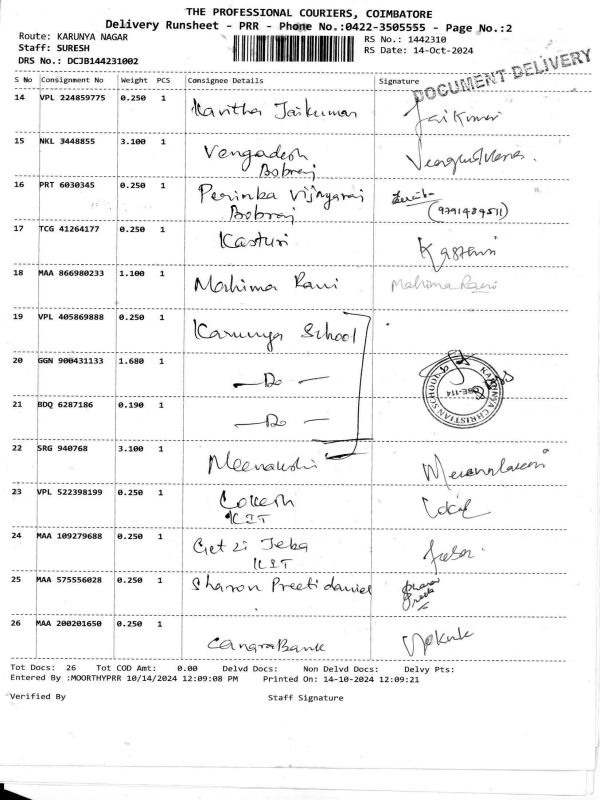 THE PROFESSIONAL COURIERS, COIMBATORE
Delivery Runsheet - PRR - Phone No.:0422-3505555 - Page No.:2
Route: KARUNYA NAGAR
Staff: SURESH
DRS No.: DCJB144231002
RS No.: 1442310
RS Date: 14-Oct-2024
DOCUMENT DELIVERY
S No Consignment No Weight PCS Consignee Details Signature
14 VPL 224859775 0.250 1 Kavitha Jaikumar Jaikumar
15 NKL 3448855 3.100 1 Vengadesh
Bobraj
16 PRT 6030345 0.250 1 Perinba Vijayaraj
Bobraj
(9791489511)
17 TCG 41264177 0.250 1 Kasturi Kasturi
18 MAA 866980233 1.100 1 Mahima Rani Mahima Rani
19 VPL 405869888 0.250 1 Karunya School
20 GGN 900431133 1.680 1 — Do —
KARUNYA CHRISTIAN SCHOOL
CBSE-114
21 BDQ 6287186 0.190 1 — Do —
22 SRG 940768 3.100 1 Meenakshi
23 VPL 522398199 0.250 1 Lokesh
KIT
24 MAA 109279688 0.250 1 Getzi Jeba
KIT
25 MAA 575556028 0.250 1 Sharon Preeti daniel
26 MAA 200201650 0.250 1 Canara Bank
Tot Docs: 26 Tot COD Amt: 0.00 Delvd Docs: Non Delvd Docs: Delvy Pts:
Entered By :MOORTHYPRR 10/14/2024 12:09:08 PM Printed On: 14-10-2024 12:09:21
Verified By Staff Signature